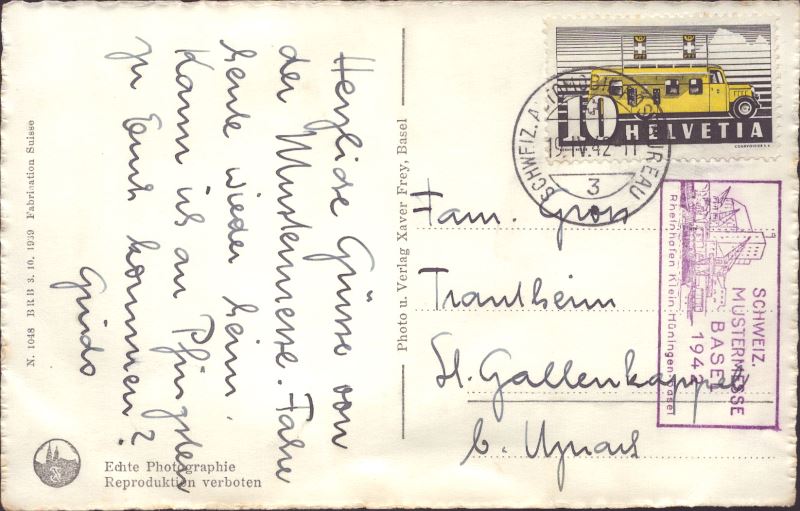 Herzliche Grüsse von
der Mustermesse. Fahre
heute wieder heim.
Kann ich an Pfingsten
zu Euch kommen?
Guido
N. 1048 BRB 3. 10. 1939 Fabrication Suisse
Echte Photographie
Reproduktion verboten
Photo u. Verlag Xaver Frey, Basel
10 HELVETIA
COURVOISIER S.A.
SCHWEIZ. AUTOMOBIL-POSTBUREAU
19.IV.42-11
3
Fam. Gross
Trautheim
St. Gallenkappel
b. Uznach
SCHWEIZ.
MUSTERMESSE
BASEL
1942
Rheinhafen Klein-Hüningen-Basel